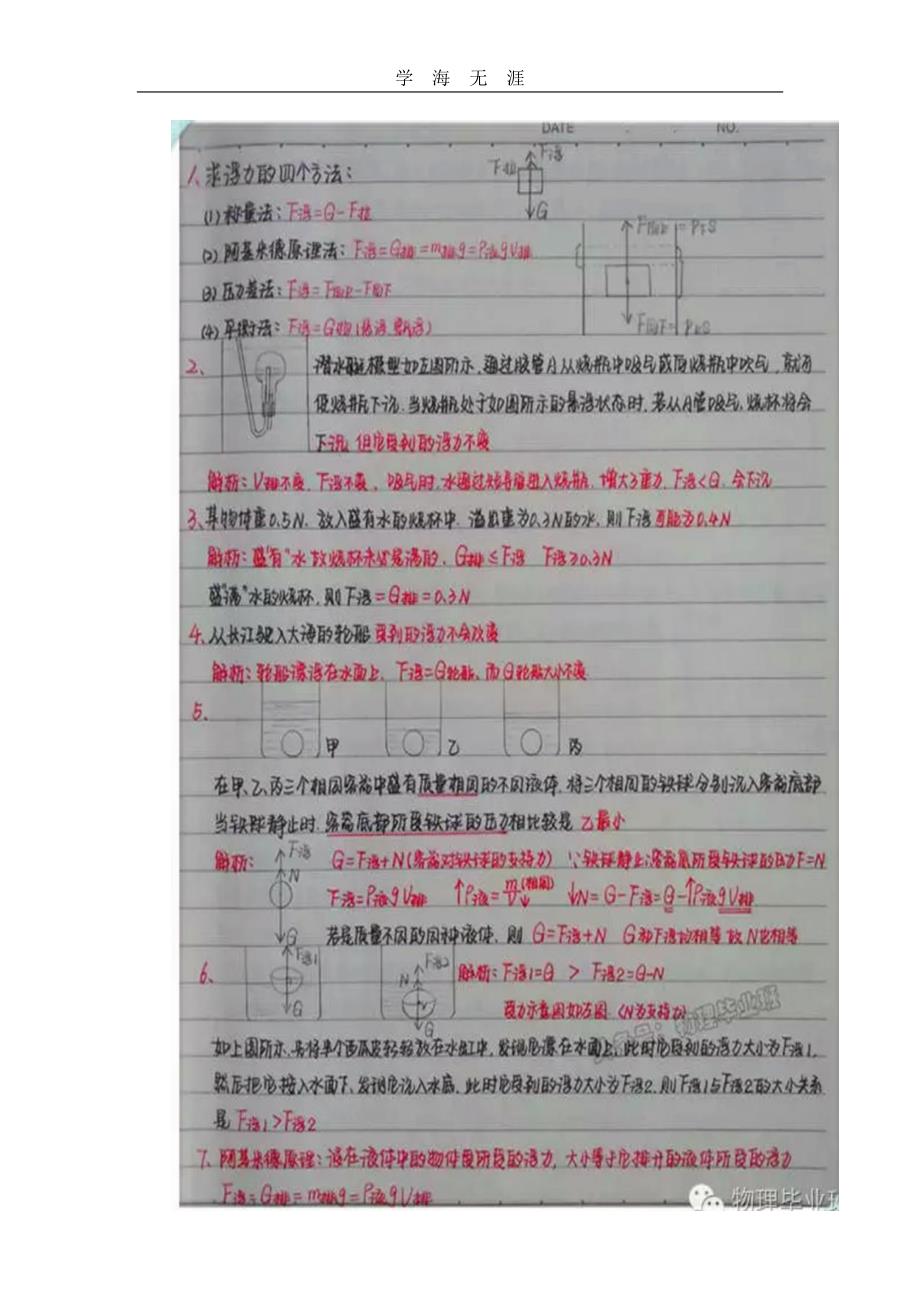 学 海 无 涯
DATE . . NO.
1、求浮力的四个方法:
F拉 F浮
G
(1) 称量法: F浮=G-F拉
(2) 阿基米德原理法: F浮=G排=m排g=ρ液gV排
(3) 压力差法: F浮=F向上-F向下
(4) 平衡法: F浮=G物(悬浮、飘浮)
F向上=P下S
F向下=P上S
2、 潜水艇模型如左图所示,通过胶管A从烧瓶中吸气或向烧瓶中吹气,就可
使烧瓶下沉.当烧瓶处于如图所示的悬浮状态时,若从A管吸气,烧杯将会
下沉,但它受到的浮力不变
解析:V排不变,F浮不变,吸气时,水通过短导管进入烧瓶,增大了重力,F浮<G,会下沉
3、某物体重0.5N,放入盛有水的烧杯中,溢出重为0.3N的水,则F浮可能为0.4N
解析:盛"有"水,故烧杯未必是满的,G排≤F浮 F浮≥0.3N
盛"满"水的烧杯,则F浮=G排=0.3N
4、从长江驶入大海的轮船受到的浮力不会改变
解析:轮船漂浮在水面上,F浮=G轮船,而G轮船大小不变
5、
甲 乙 丙
在甲、乙、丙三个相同容器中盛有质量相同的不同液体,将三个相同的铁球分别沉入容器底部
当铁球静止时,容器底部所受铁球的压力相比较是乙最小
解析: F浮 G=F浮+N(容器对铁球的支持力) ∵铁球静止∴容器底所受铁球的压力F=N
N F浮=ρ液gV排 ↑ρ液=m(相同)/V↓ ↓N=G-F浮=G-↑ρ液gV排
G 若是质量不同的同种液体,则 G=F浮+N G和F浮均相等 故N也相等
6、 F浮1 G N F浮2 G 解析:F浮1=G > F浮2=G-N
受力示意图如左图 (N为支持力)
物理毕业班
如上图所示,将半个西瓜皮轻轻放在水缸中,发现它漂在水面上,此时它受到的浮力大小为F浮1,
然后把它按入水面下,发现它沉入水底,此时它受到的浮力大小为F浮2,则F浮1与F浮2的大小关系
是 F浮1>F浮2
7、阿基米德原理:浸在液体中的物体受所受的浮力,大小等于它排开的液体所受的浮力
F浮=G排=m排g=ρ液gV排
物理毕业班